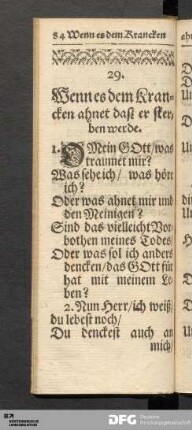 84 Wenn es dem Krancken
29.
Wenn es dem Kran-
cken ahnet daß er ster-
ben werde.
1. O Mein GOtt/was
traumet mir?
Was sehe ich/ was hört
ich?
Oder was ahnet mir und
den Meinigen?
Sind das vielleicht Vor-
bothen meines Todes/
Oder was sol ich anders
dencken/das GOtt für
hat mit meinem Le-
ben?
2. Nun Herr/ich weiß/
du lebest noch/
Du denckest auch an
mich/
DFG